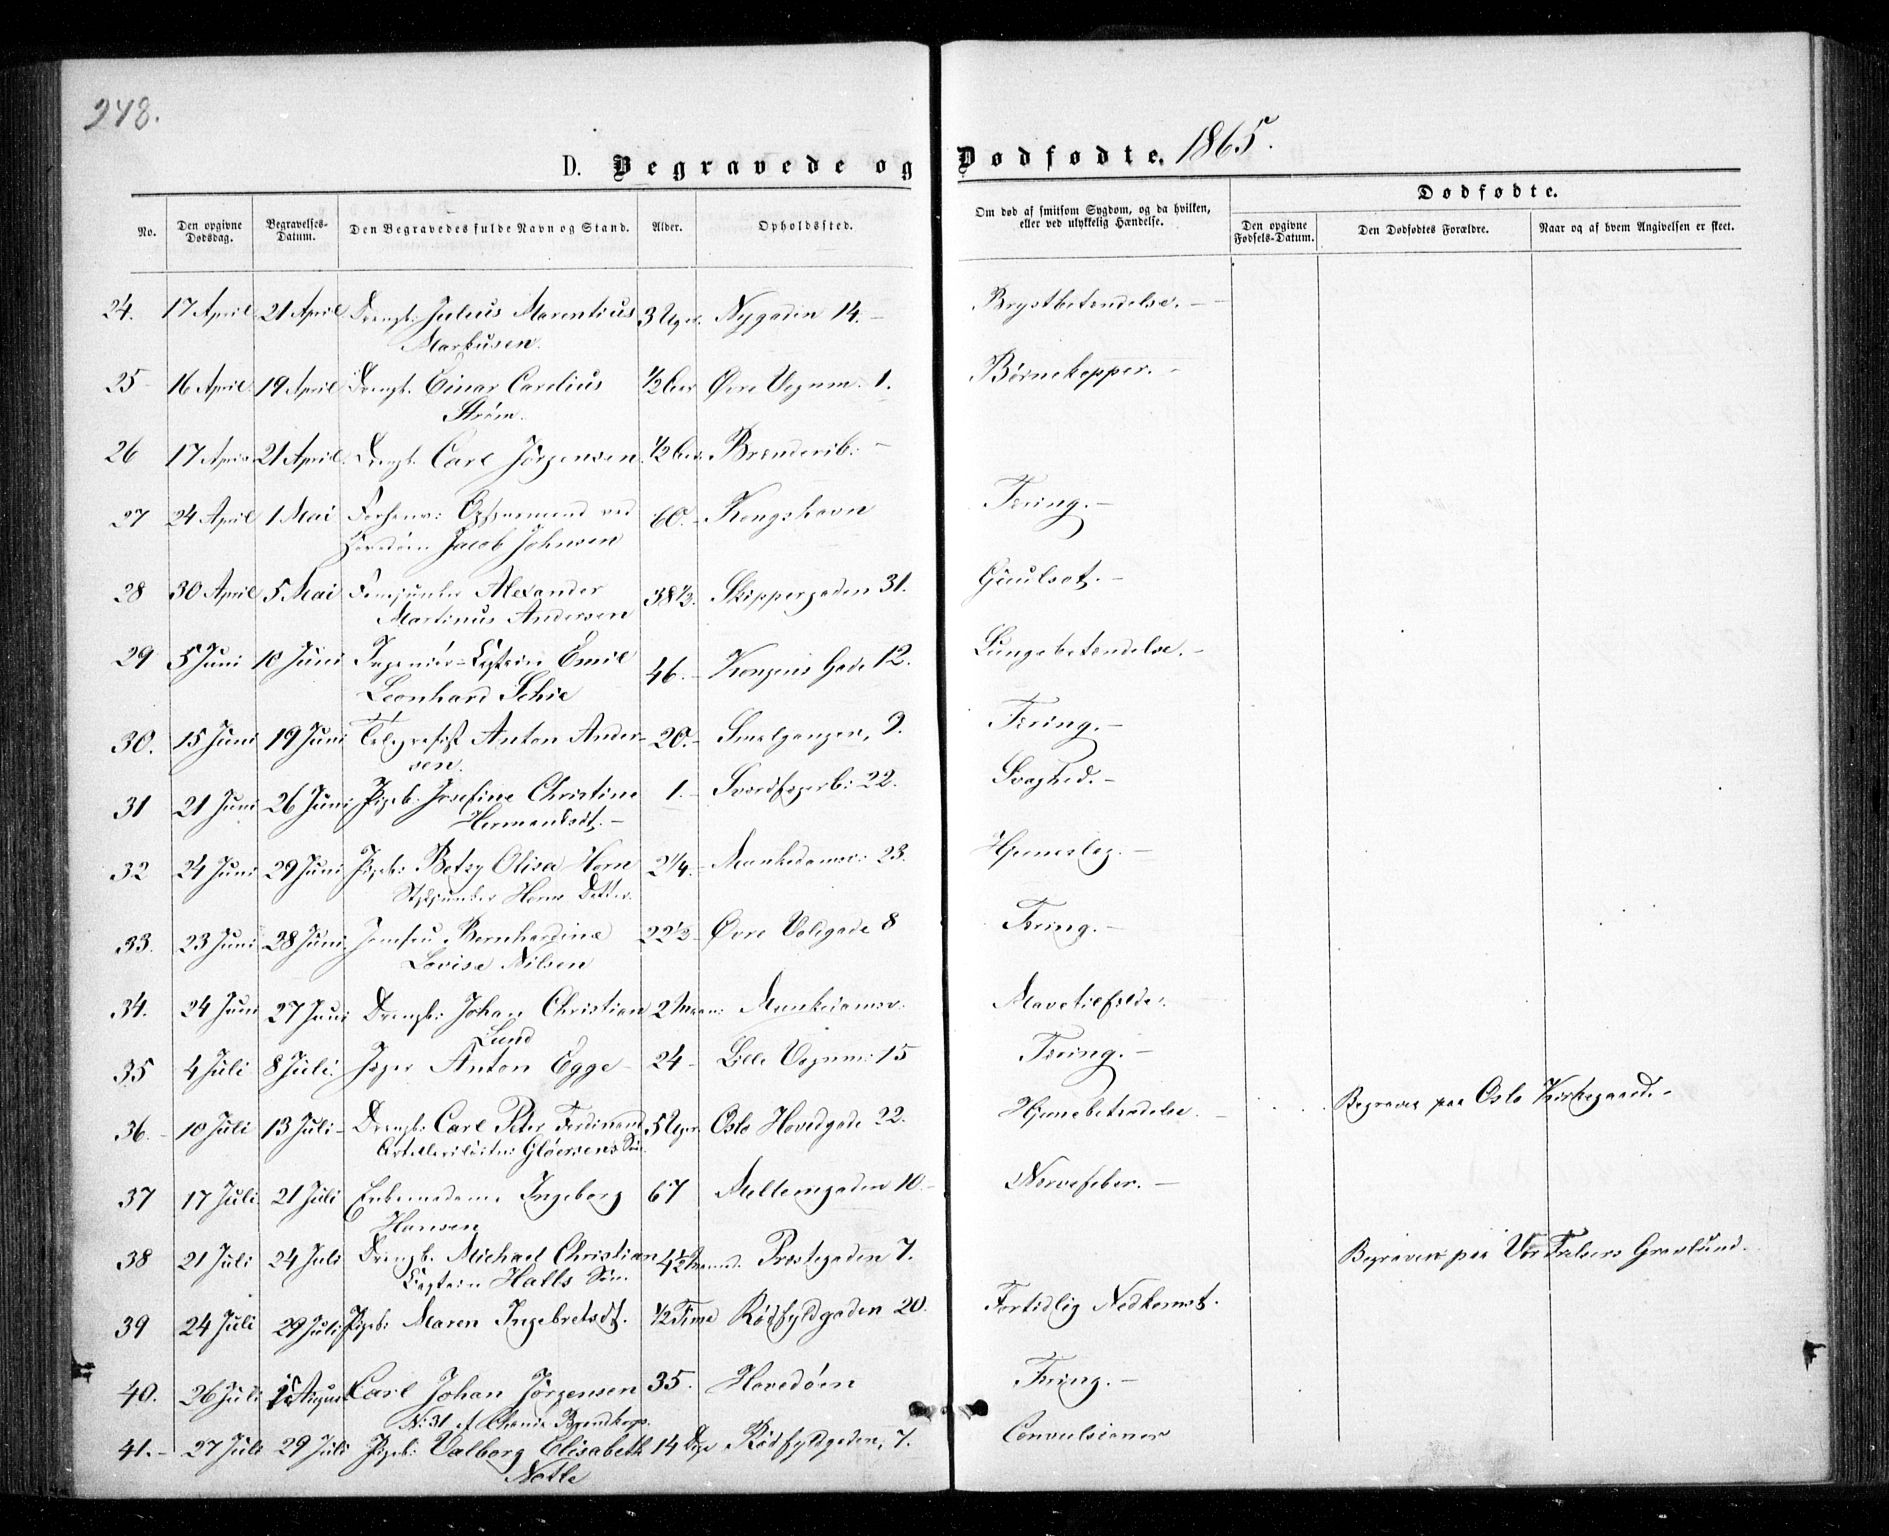 248.
D. Begravede og Dødfødte. 1865.
No.
Den opgivne Dødsdag.
Begravelses-Datum.
Den Begravedes fulde Navn og Stand.
Alder.
Opholdssted.
Om død af smitsom Sygdom, og da hvilken, eller ved ulykkelig Hændelse.
Dødfødte.
Den opgivne Fødsels-Datum.
Den Dødfødtes Forældre.
Naar og af hvem Angivelsen er skeet.
24. 17 April 21 April Drengb. Julius Marentius 3 Uger. Nygaden 14. – Brystbetendelse. –
Markusen.
25 16 April 19 April Drengb. Einar Carelius 1/2 Øvre Vognm. 1. Børnekopper. –
Strøm.
26 17 April 21 April. Drengb. Carl Jörgensen 1/2 Brenderib: –
27 24 April 1 Mai Opsynsmand ved 60. – Kongshavn Tæring. –
Hovedöen Jacob Johnsen
28 30 April 5 Mai Alexander 38 1/2. Skippergaden 31. Guulsot. –
Martinus Andersen
29 5 Juni 10 Juni Ingeniör-Captein Emil 46. – Kongens Gade 12. Lungebetendelse. –
Leonhard Schie
30. 15 Juni 19 Juni Telegrafist Anton Ander- 20. – Smalgangen, 9. Tæring. –
sen.
31 21 Juni 26 Juni Pigeb. Josefine Christine 1. – Sværdfegerb: 22. Svaghed. –
Hermansdt. –
32 24 Juni 29 Juni Pigeb: Betzy Olisa Horn 2 1/4. – Munkedamsv: 23. –
Horns Datter.
33. 23 Juni 28 Juni Jomfru Bernhardine 22 1/2 – Øvre Voldgade 8 Tæring. –
Lovise Nilsen
34. 24 Juni 27 Juni Drengb: Johan Christian 2 Maan: Munkedamsv: Mavetilfælde.
Lund
35 4 Juli 8 Juli. Jæger Anton Egge 24 – Lille Vognm: 15 Tæring. –
36. – 10 Juli 13 Juli – Drengb: Carl Peter Ferdinand 5 Uger. Oslo Hovedgade 22. Hjernebetendelse. – Begraves paa Oslo Kirkegaard. –
Gløersens Sön.
37 17 Juli. 21 Juli Enkemadame Ingeborg 67 Mellemgaden 10. – Nervefeber. –
Hansen
38 21 Juli 24 Juli Drengb. Michael Christian 4 1/2 Maaned. Præstegaden 7. Begraves paa Vor Frelsers Gravlund. –
Captein Halls Sön.
39 24 Juli 29 Juli Pigeb: Maren Ingebretsdt. 1/2 Time Rödfyldgaden 20. Fortidlig Nedkomst.
40. 26 Juli 1 August Carl Johan Jörgensen 35. Hovedöen Tæring. –
No: 31 af
41. – 27 Juli 29 Juli Pigeb: Valborg Elisabeth 14 Dage Rödfyldgaden, 7. Convulsioner
Nøtle